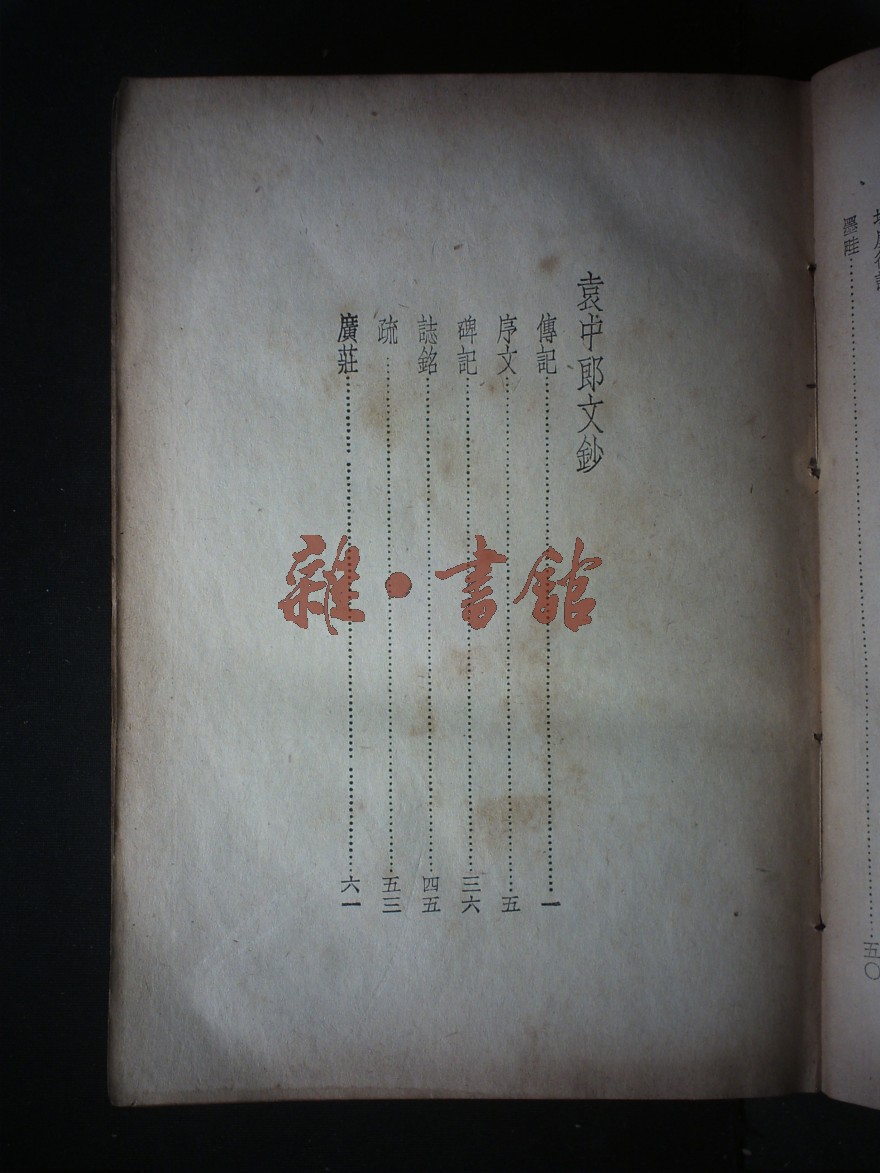 墨畦……五〇
袁中郎文鈔
傳記……一
序文……五
碑記……三六
誌銘……四五
疏……五三
廣莊……六一
雜·書館